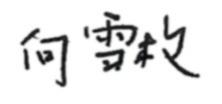 何雪枚